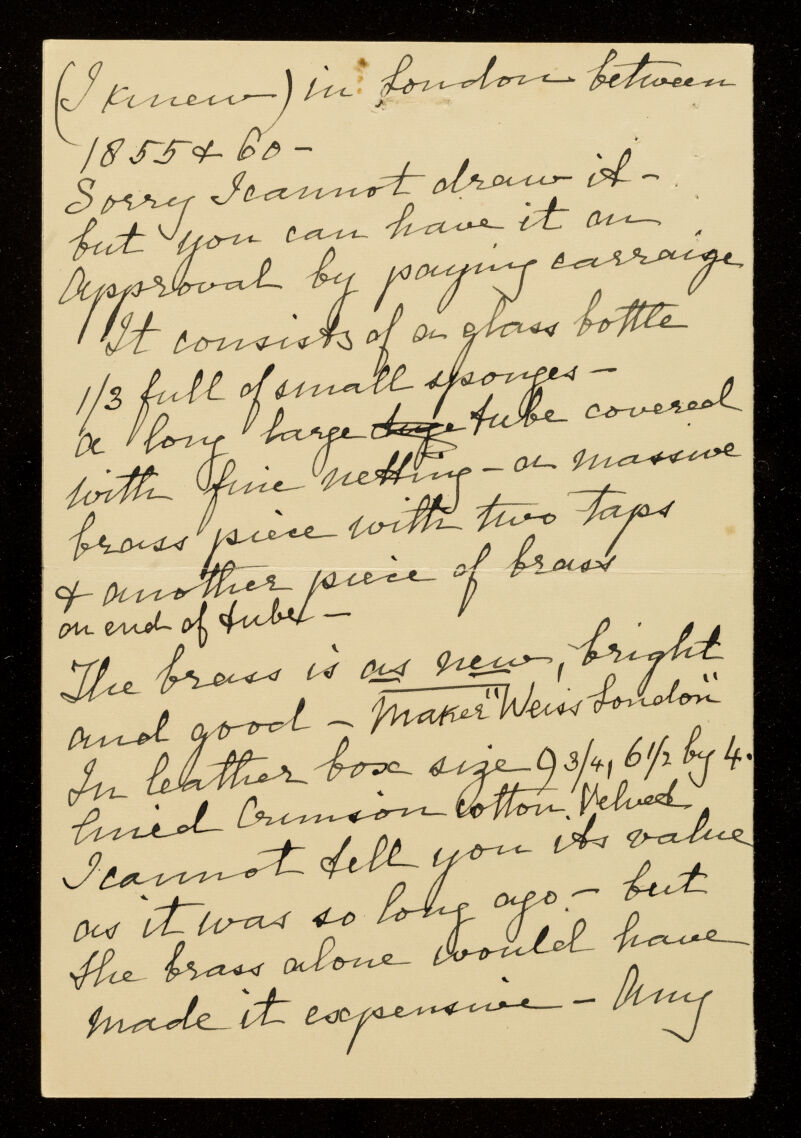 (I knew) in London between
1855 & 60 -
Sorry I cannot draw it -
but you can have it on
Approval by paying carraige
It consists of a glass bottle
1/3 full of small sponges -
a long large tube covered
with fine netting - a massive
brass piece with two taps
& another piece of brass
on end of tube -
The brass is as new, bright
and good - Maker "Weiss London"
In leather box size 9 3/4, 6 1/2 by 4.
lined Crimson cotton Velvet
I cannot tell you its value
as it was so long ago - but
the brass alone would have
made it expensive - Any